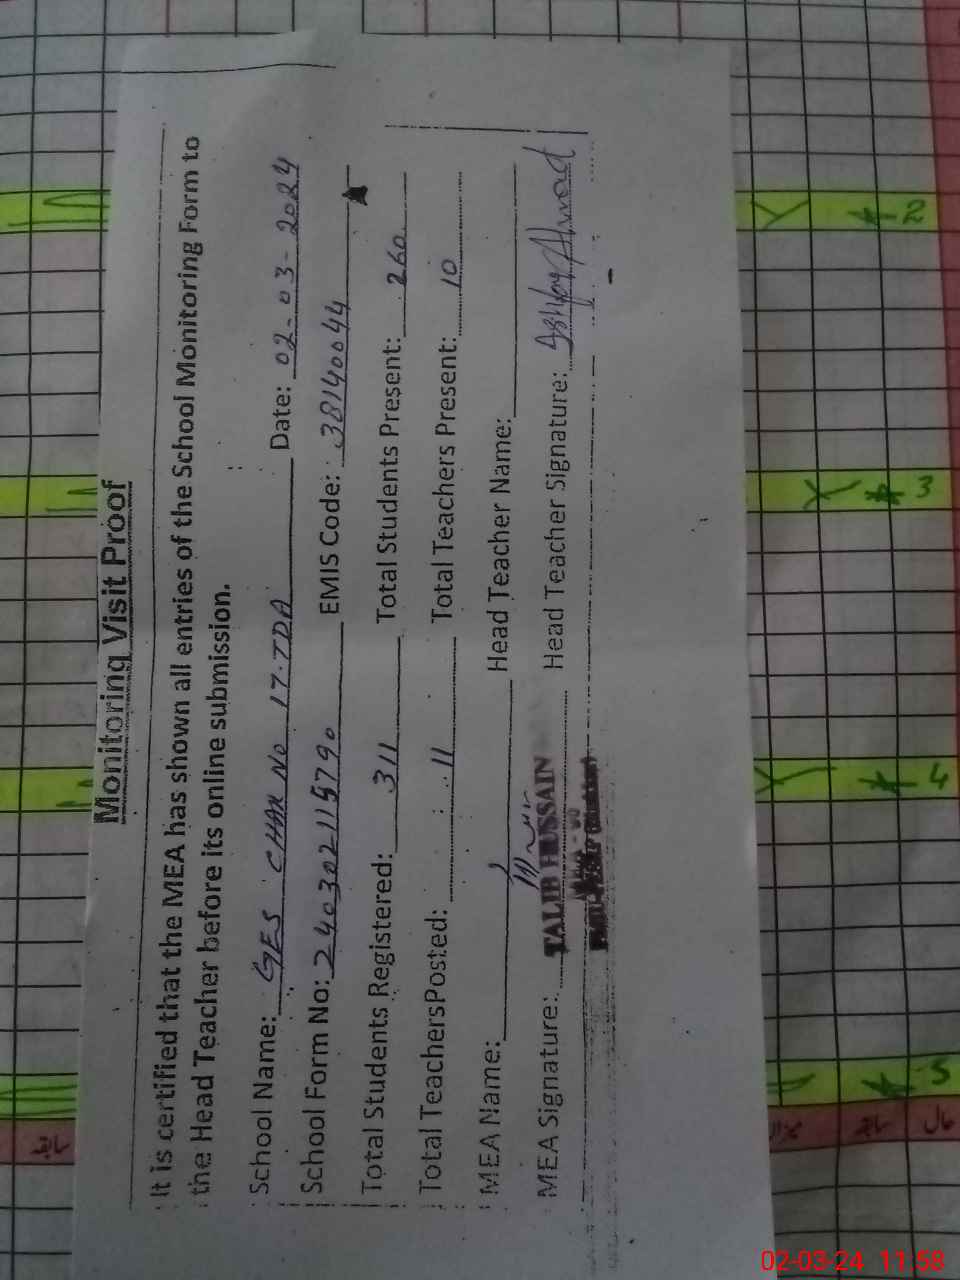 Monitoring Visit Proof
It is certified that the MEA has shown all entries of the School Monitoring Form to
the Head Teacher before its online submission.
School Name: GES CHAK No 17-TDA Date: 02-03-2024
School Form No: 240302115790 EMIS Code: 38140044
Total Students Registered: 311 Total Students Present: 260
Total TeachersPosted: 11 Total Teachers Present: 10
MEA Name: Head Teacher Name:
MEA Signature: Head Teacher Signature: Ashfaq Ahmad
TALIB HUSSAIN
2
3
4
5
سابقہ
میزان
سابقہ
حال
02-03-24 11:58